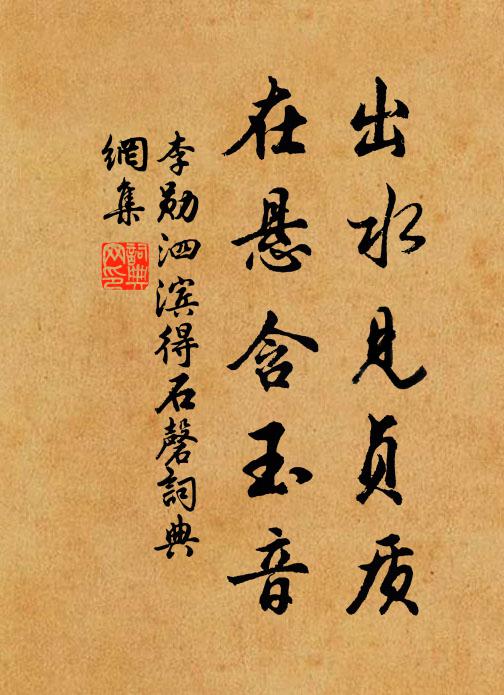 出水见贞质
在悬含玉音
李勋泗滨得石磬詞典
網集
詞典
网印